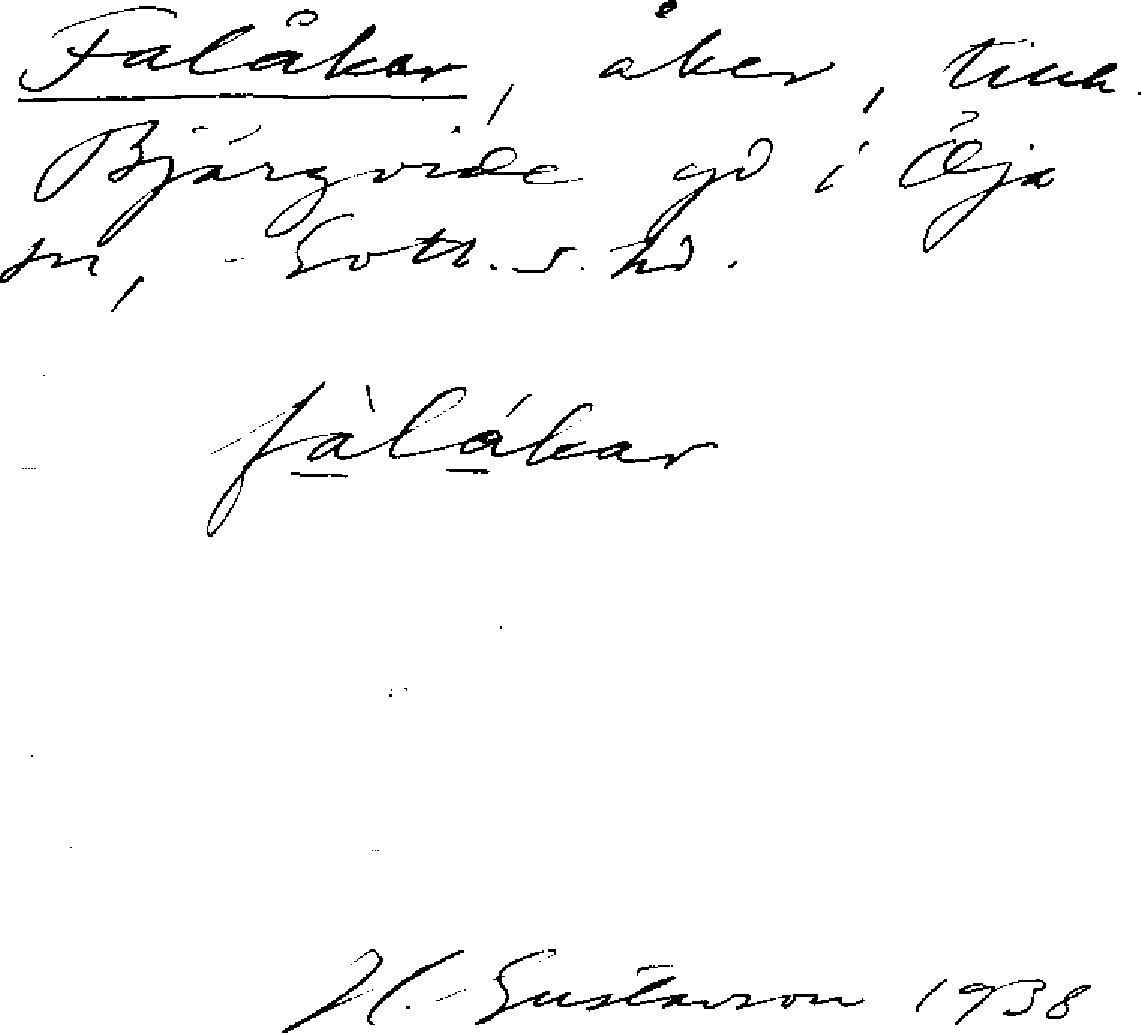 Falåkar, åker, tillh.
Bjärgvide gd i Öja
sn, Gotl. s. hd.
fàlákar
H. Gustavson 1938